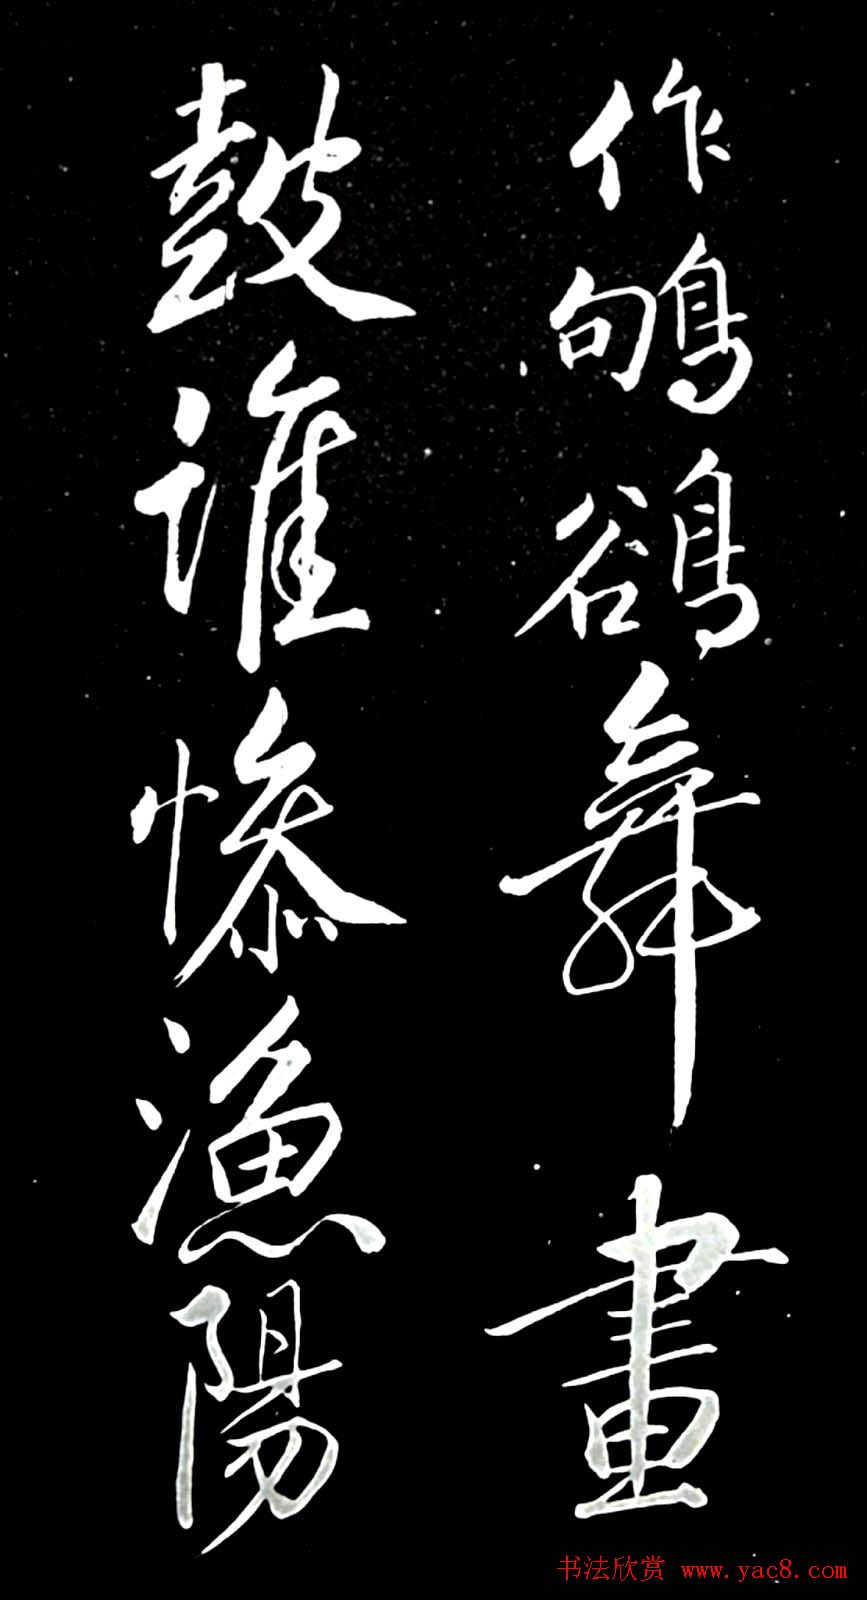 作鴝鵒舞畫
鼓誰慘漁陽
书法欣赏 www.yac8.com